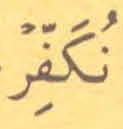 نُكَفِّرْ